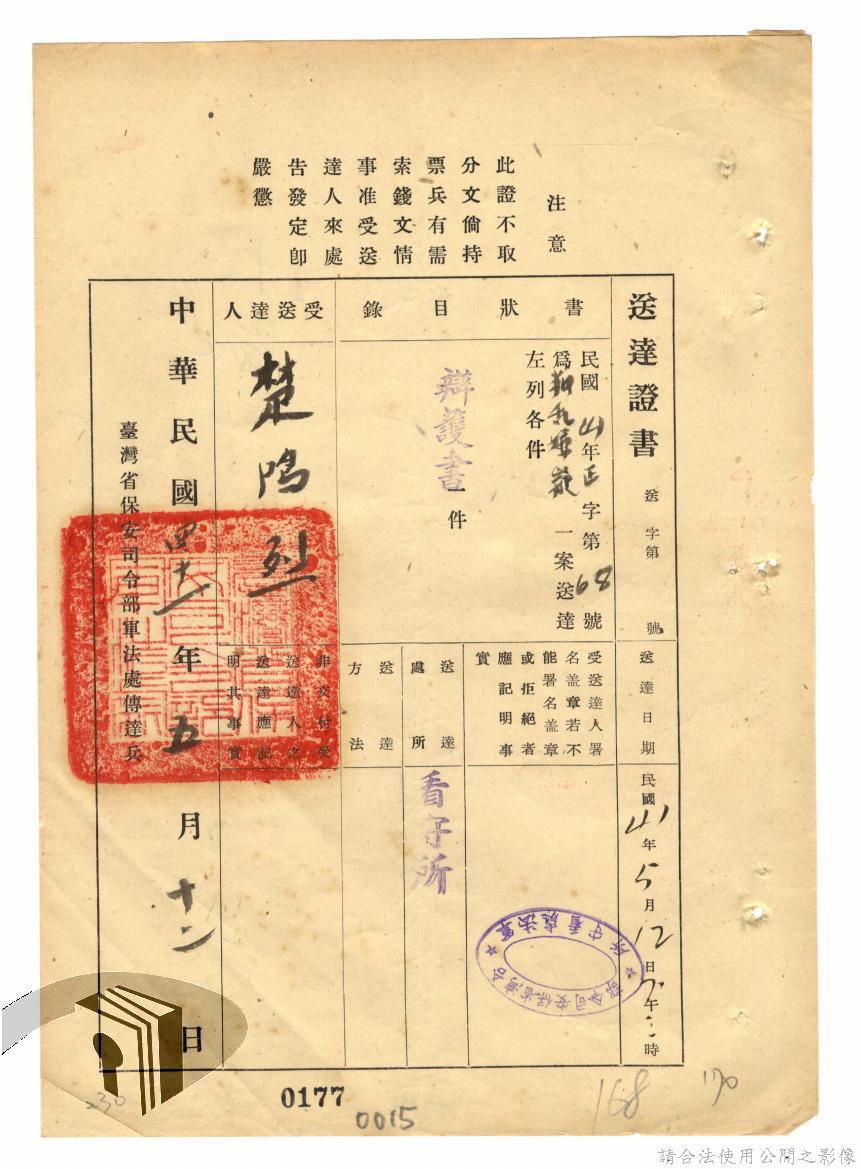 注意
此證不取
分文倘持
票兵有需
索錢文情
事准受送
達人來處
告發定卽
嚴懲
送達證書
送 字第 號
送達日期
民國41年5月12日 午 時
書狀目錄
民國41年 字第68號
爲叛亂嫌疑一案送達
左列各件
辯護書 件
受送達人署
名盖章若不
能署名盖章
或拒絕者
應記明事
實
送達處所
看守所
送達方法
受送達人
楚鴻烈
非交付受
送達人之
送達應記
明其事實
中華民國四十一年五月十二日
臺灣省保安司令部軍法處傳達兵
台灣省保安司令部
軍法處看守所
0177
0015
168
170
230
請合法使用公開之影像